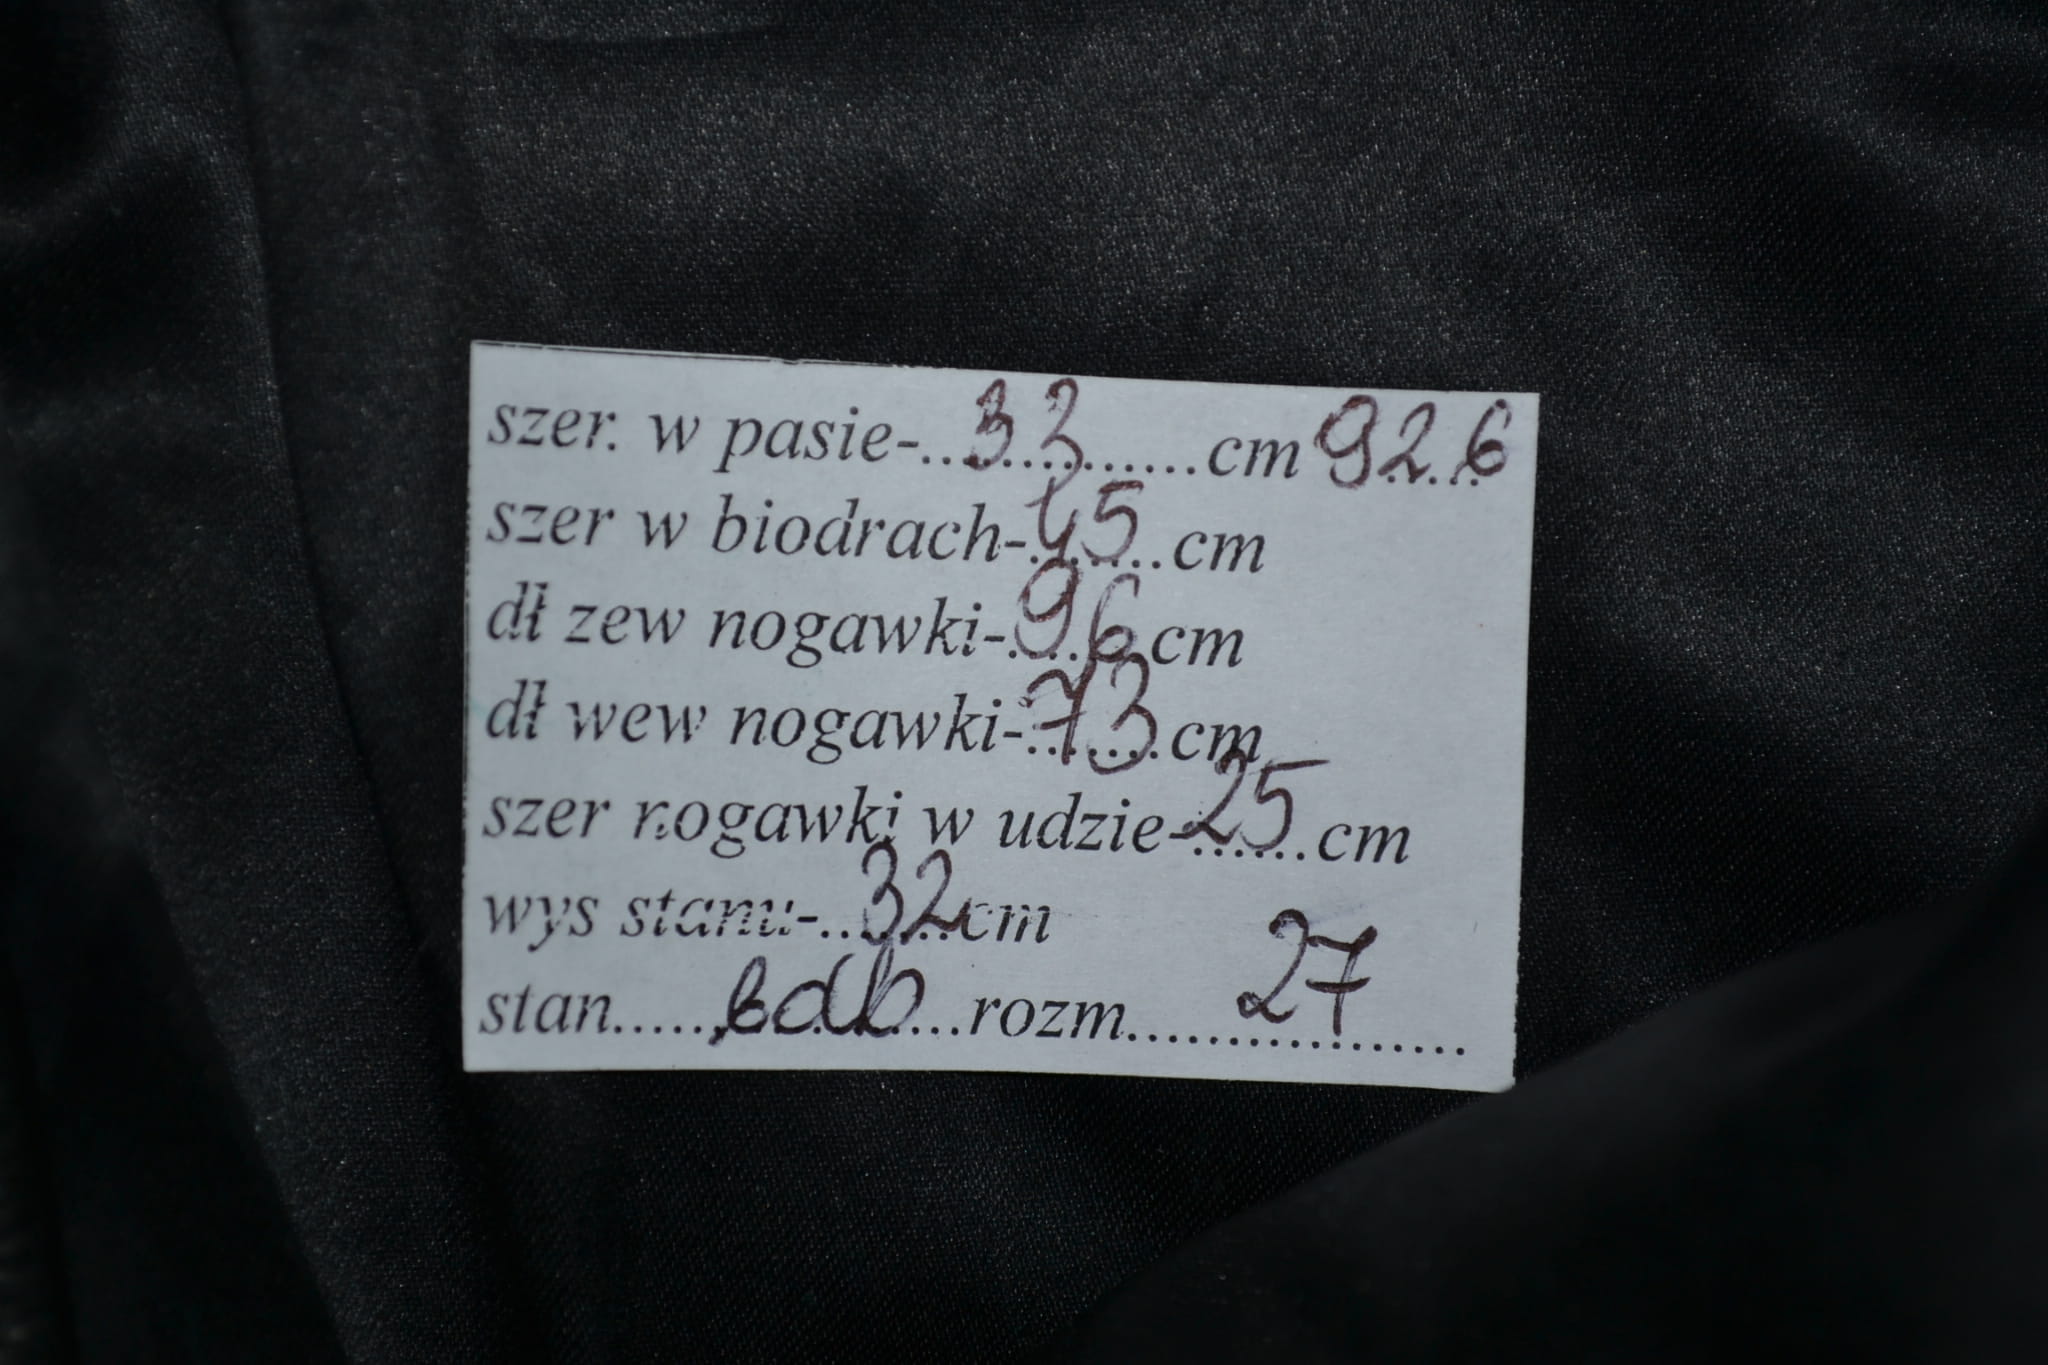 szer. w pasie-..33............cm 92.6
szer w biodrach-.45...cm
dł zew nogawki-.96.cm
dł wew nogawki-.73..cm
szer nogawki w udzie-25...cm
wys stanu-..32..cm
stan.....bdb...rozm......27...........